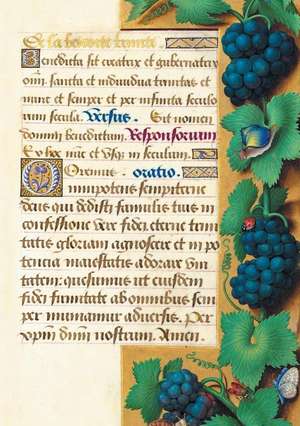 De la benoiste trinite.
Benedicta sit creatrix et gubernatrix
om̄ı. sancta et indiuidua trinitas et
nunc et semper et per infinita seculo
rum secula. Versus. Sit nomen
domini benedictum. Responsorium
Ex hoc nūc et vsq̄ in seculum.
Oremus. oratio.
Omnipotens sempiterne
deus qui dedisti famulis tuis in
confessione vere fidei eterne trini
tatis gloriam agnoscere et in po
tencia maiestatis adorare vni
tatem: quesumus ut eiusdem
fidei firmitate ab omnibus sem
per muniamur aduersis. Per
xp̄m dn̄m nostrum. Amen.